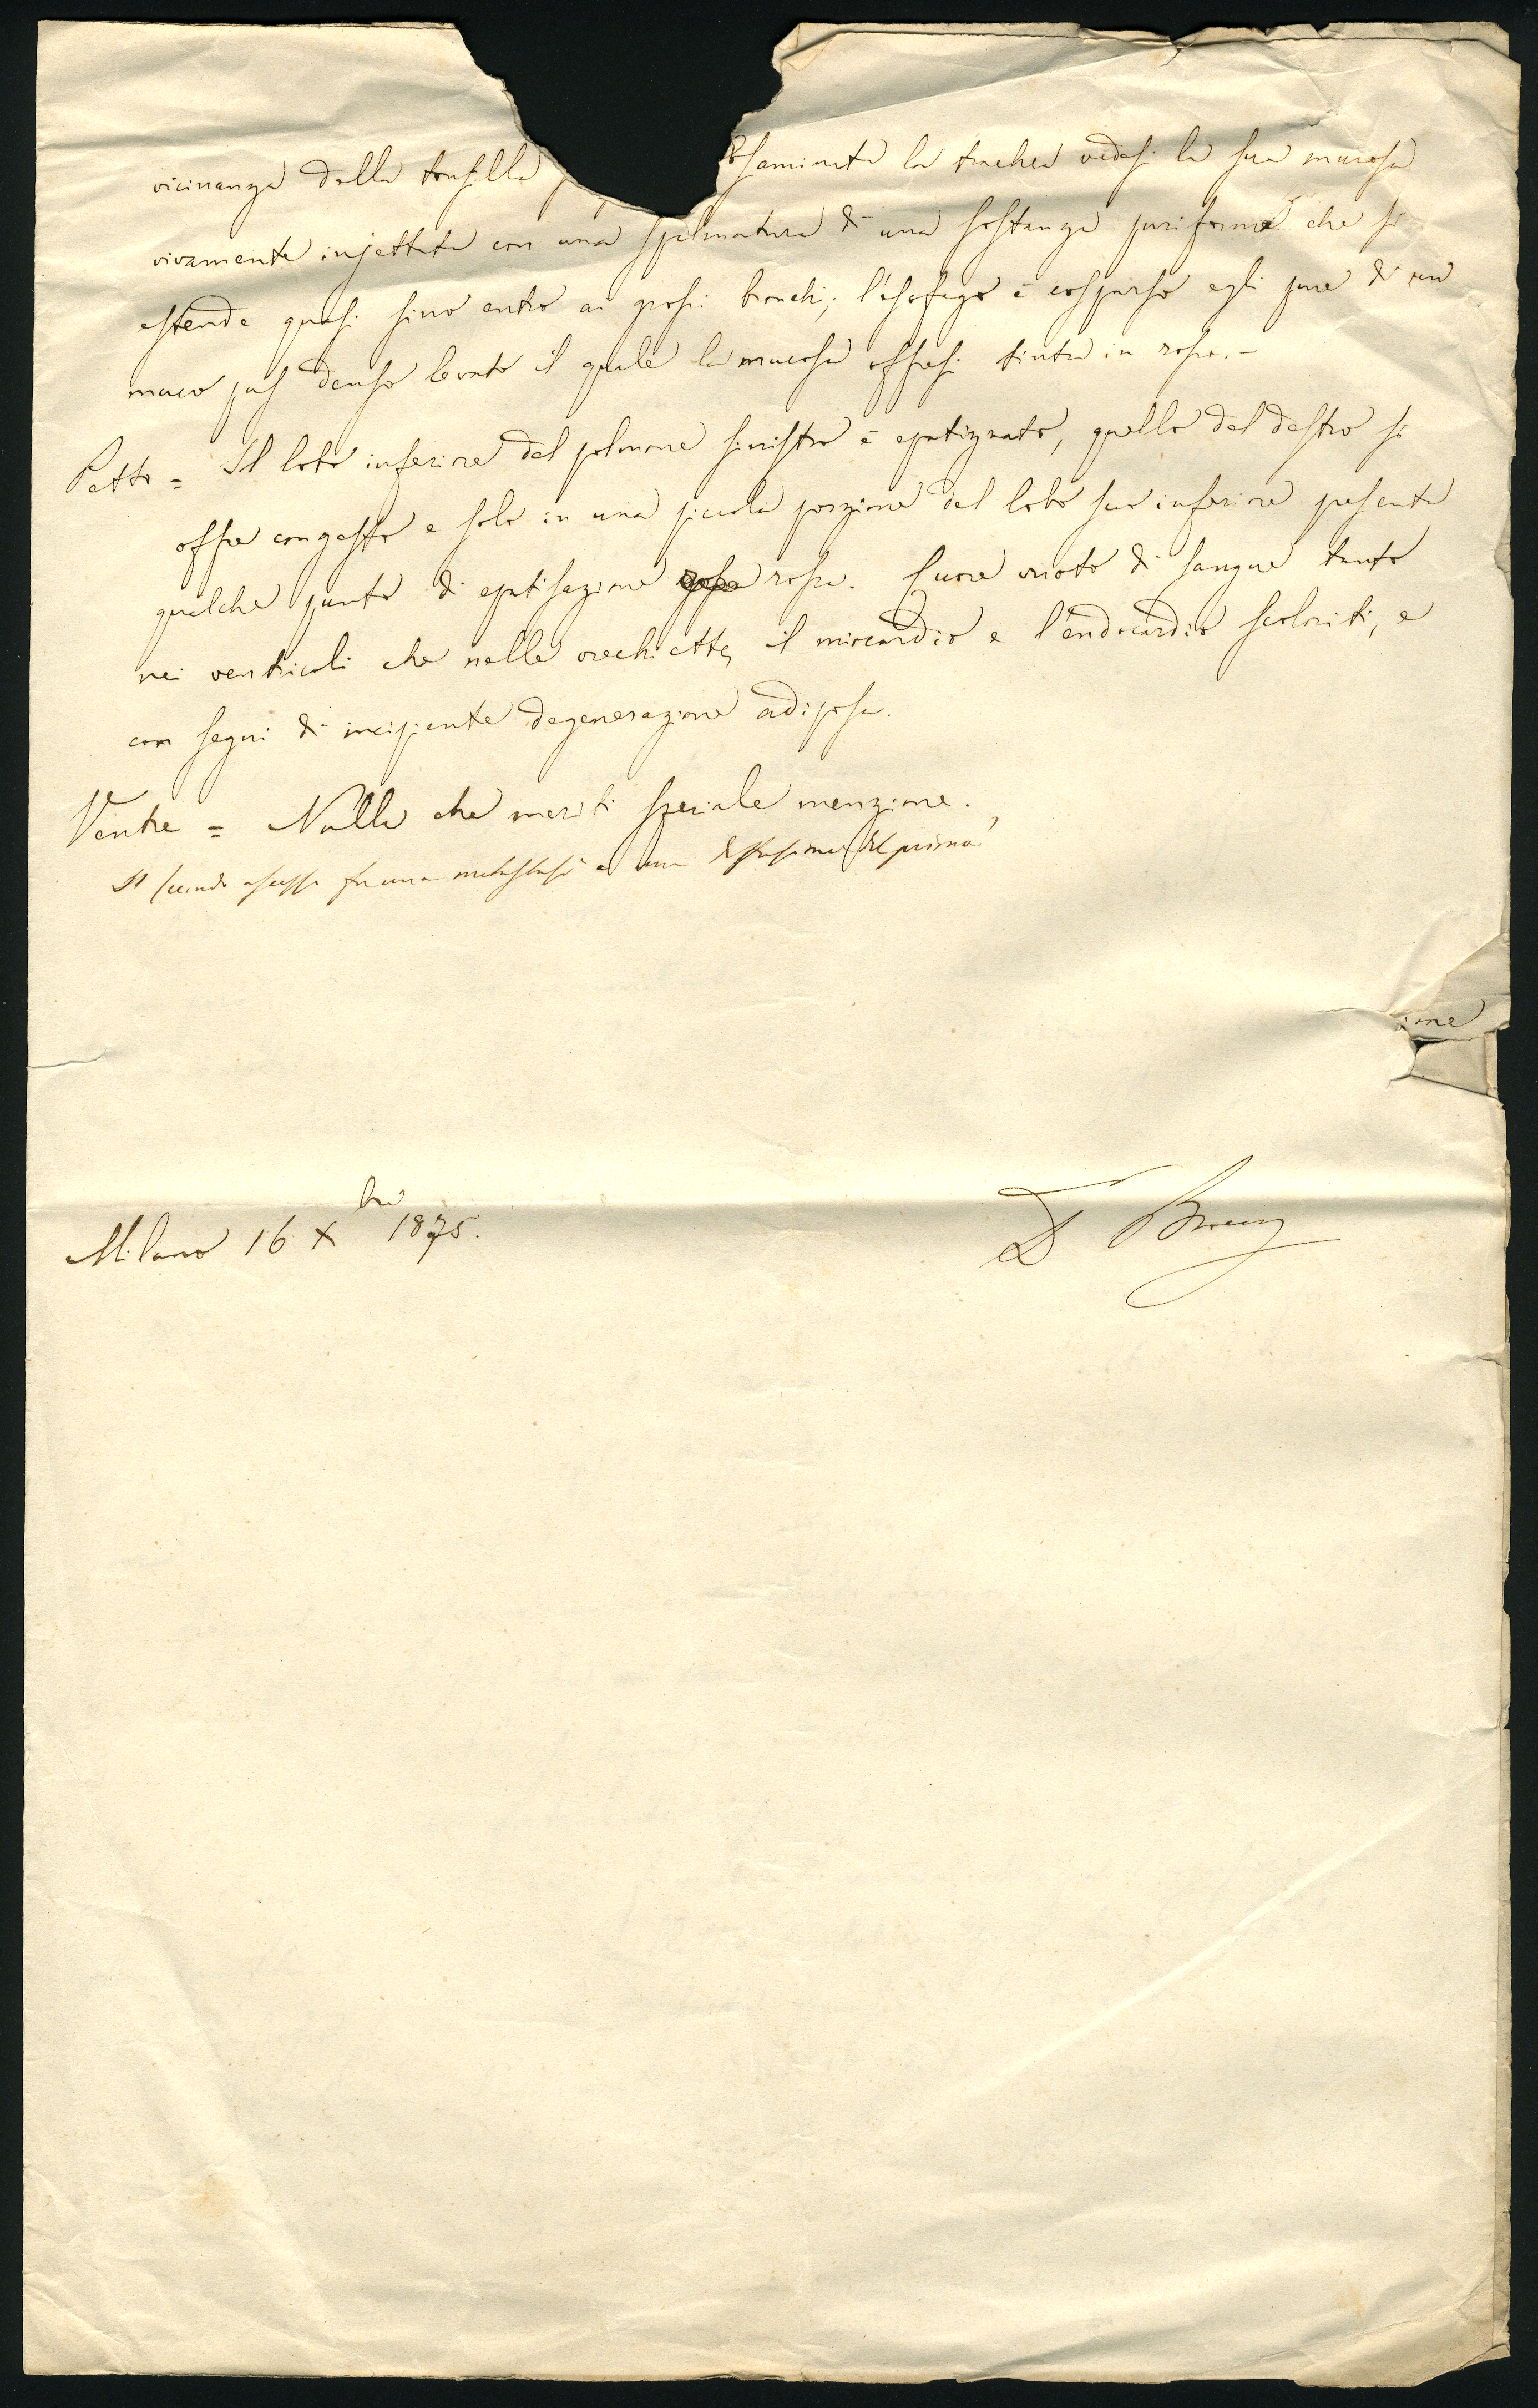 vicinanza della tonsilla Esaminata la trachea vedesi la sua mucosa
vivamente injettata con una spalmatura di una sostanza puriforme che si
estende quasi sino entro ai grossi bronchi; l'esofago è cosparso egli pure di un
muco pus denso levato il quale la mucosa offresi tinta in rosso. –
Petto = Il lobo inferiore del polmone sinistro è epatizzato, quello del destro si
offre congesto e solo in una piccola porzione del lobo suo inferiore presenta
qualche punto di epatisazione rossa. Cuore vuoto di sangue tanto
nei ventricoli che nelle orechiette, il miocardio e l'endocardio scoloriti, e
con segni di incipiente degenerazione adiposa.
Ventre = Nulla che meriti speciale menzione.
Il secondo ascesso fu una metastasi o una diffusione del primo?
ione
Milano 16 Xbre 1875.
Dr